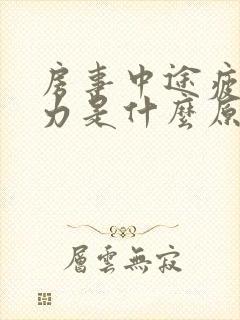 房事中途疲
力是什麼原
層雲無寂